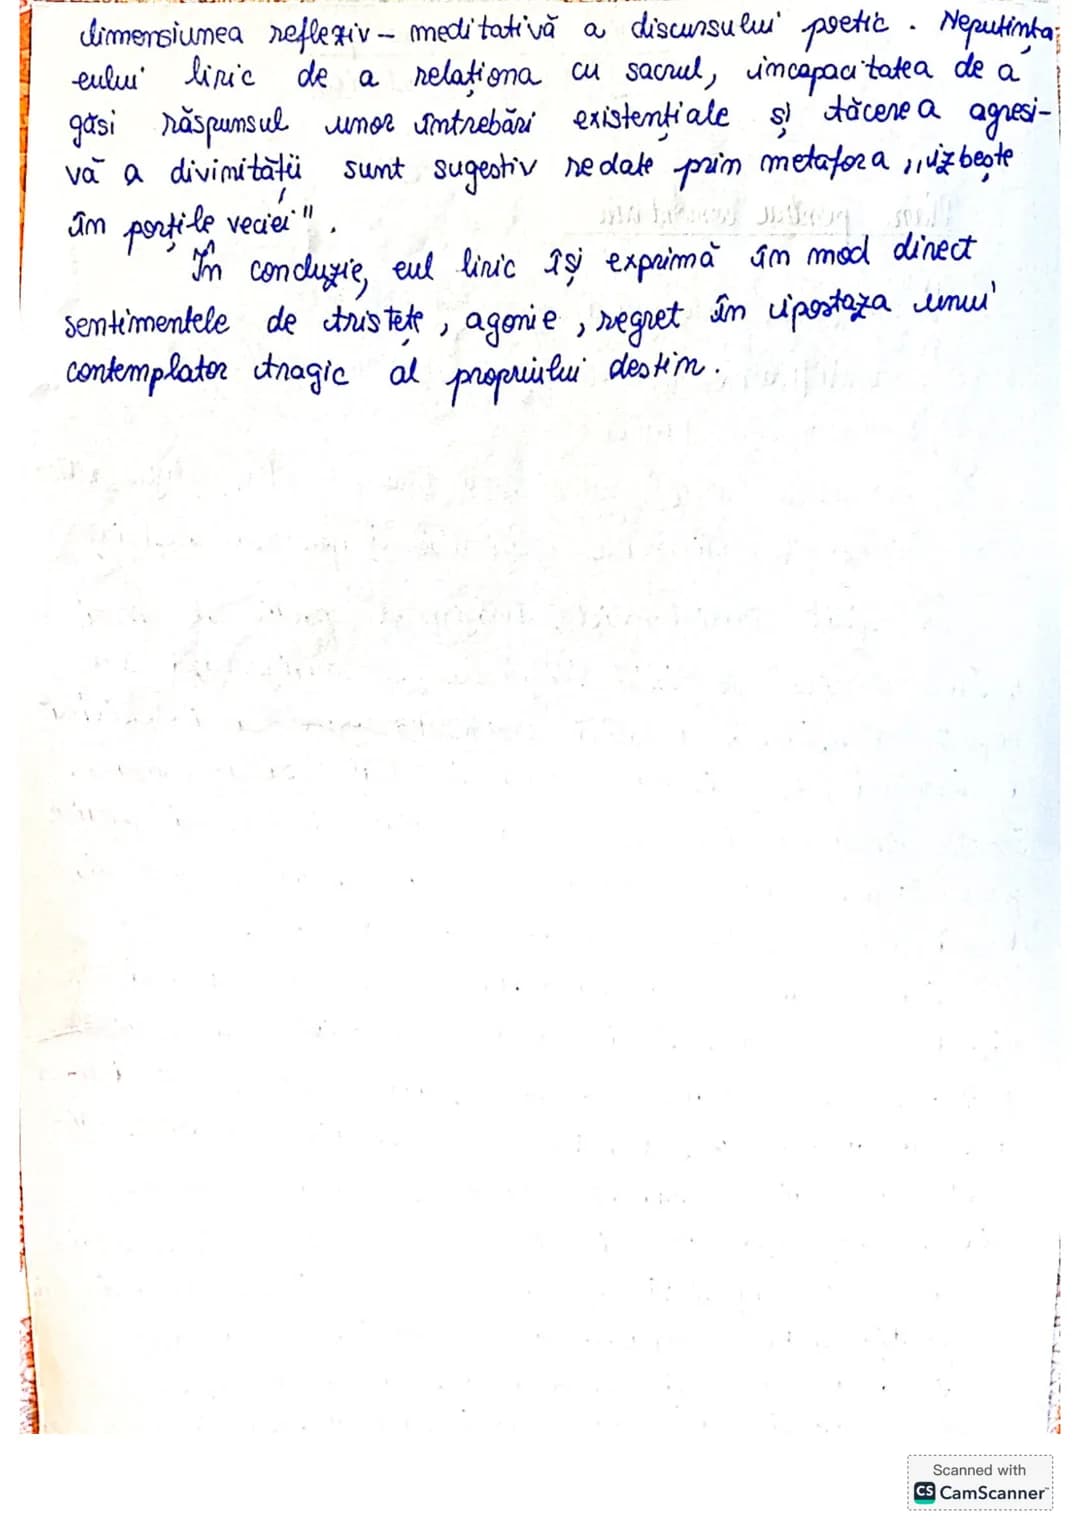 dimensiunea reflexiv - meditativă a discursului poetic. Neputința
eului liric de a relaționa cu sacrul, incapacitatea de a
găsi răspunsul unor întrebări existențiale și tăcerea agresi-
vă a divinității sunt sugestiv redate prin metafora ,,izbește
în porțile veciei".
În concluzie, eul liric își exprimă în mod direct
sentimentele de tristețe, agonie, regret în ipostaza unui
contemplator tragic al propriului destin.
Scanned with
CS CamScanner